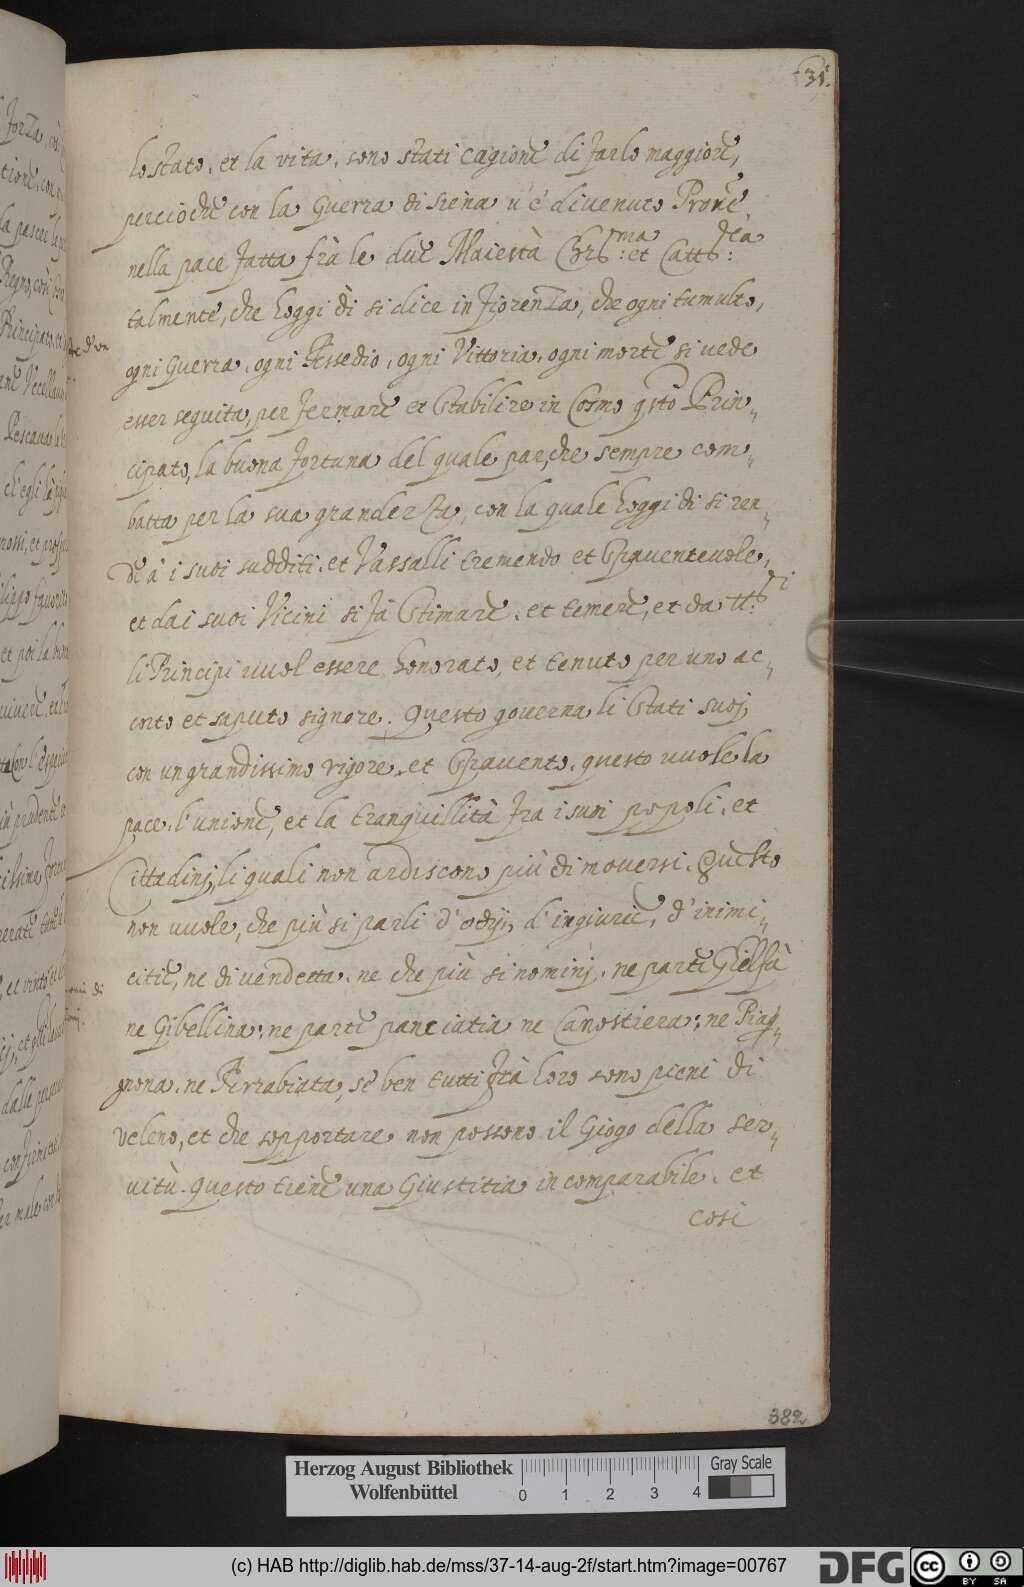 31.
lo stato, et la vita, sono stati cagione di farlo maggiore,
percioche con la Guerra di Siena n'è divenuto Prone
nella pace fatta frà le due Maiestà Chrisma: et Cattca:
talmente, che hoggi dì si dice in Fiorenza, che ogni tumulto,
ogni Guerra, ogni Assedio, ogni Vittoria, ogni morte si vede
esser seguita, per fermare et Stabilire in Cosmo qsto Prin-
cipato, la buona fortuna del quale par, che sempre com-
batta per la sua grandezza, con la quale hoggi di si ren-
de à i suoi sudditi, et Vassalli tremendo et Spaventevole,
et da i suoi Vicini si fà Stimare, et temere, et da tutti
li Principi vuol essere honorato, et tenuto per uno ac-
corto et saputo signore. Questo governa li Stati suoj
con un grandissimo rigore, et Spavento, questo vuole la
pace, l'unione, et la tranquillità fra i suoi popoli, et
Cittadinj, li quali non ardiscono più di moversi. Questo
non vuole, che più si parli d'odij, d'ingiurie, d'inimi-
citie, ne di vendetta, ne che più si nominj, ne parte Gielfà
ne Gibellina; ne parte panciatia ne Canostiera; ne Piag-
gnona, ne Arrabiata, se ben tutti frà loro sono pieni di
veleno, et che sopportare non possono il Giogo della ser-
vitù. Questo tiene una Giustitia incomparabile, et
cosi
382
Herzog August Bibliothek
Wolfenbüttel
0 1 2 3 4
Gray Scale
(c) HAB http://diglib.hab.de/mss/37-14-aug-2f/start.htm?image=00767
DFG
cc BY SA